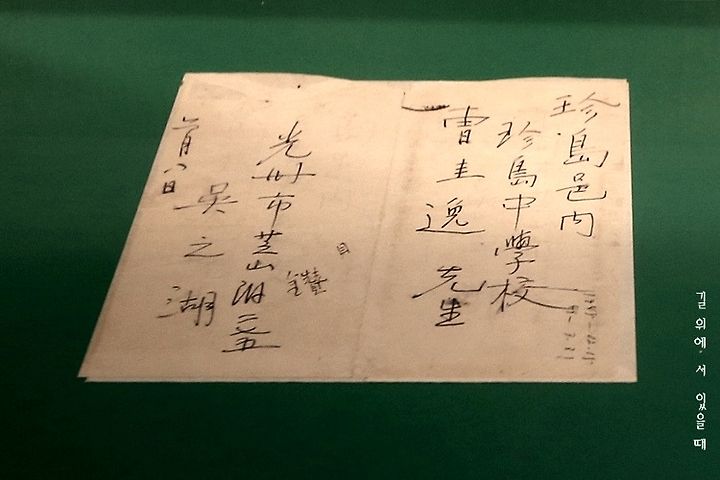 珍島邑內
珍島中學校
曺圭逸 先生
光州市芝山洞二五
吳之湖
二月八日
길 위에 서 있을 때